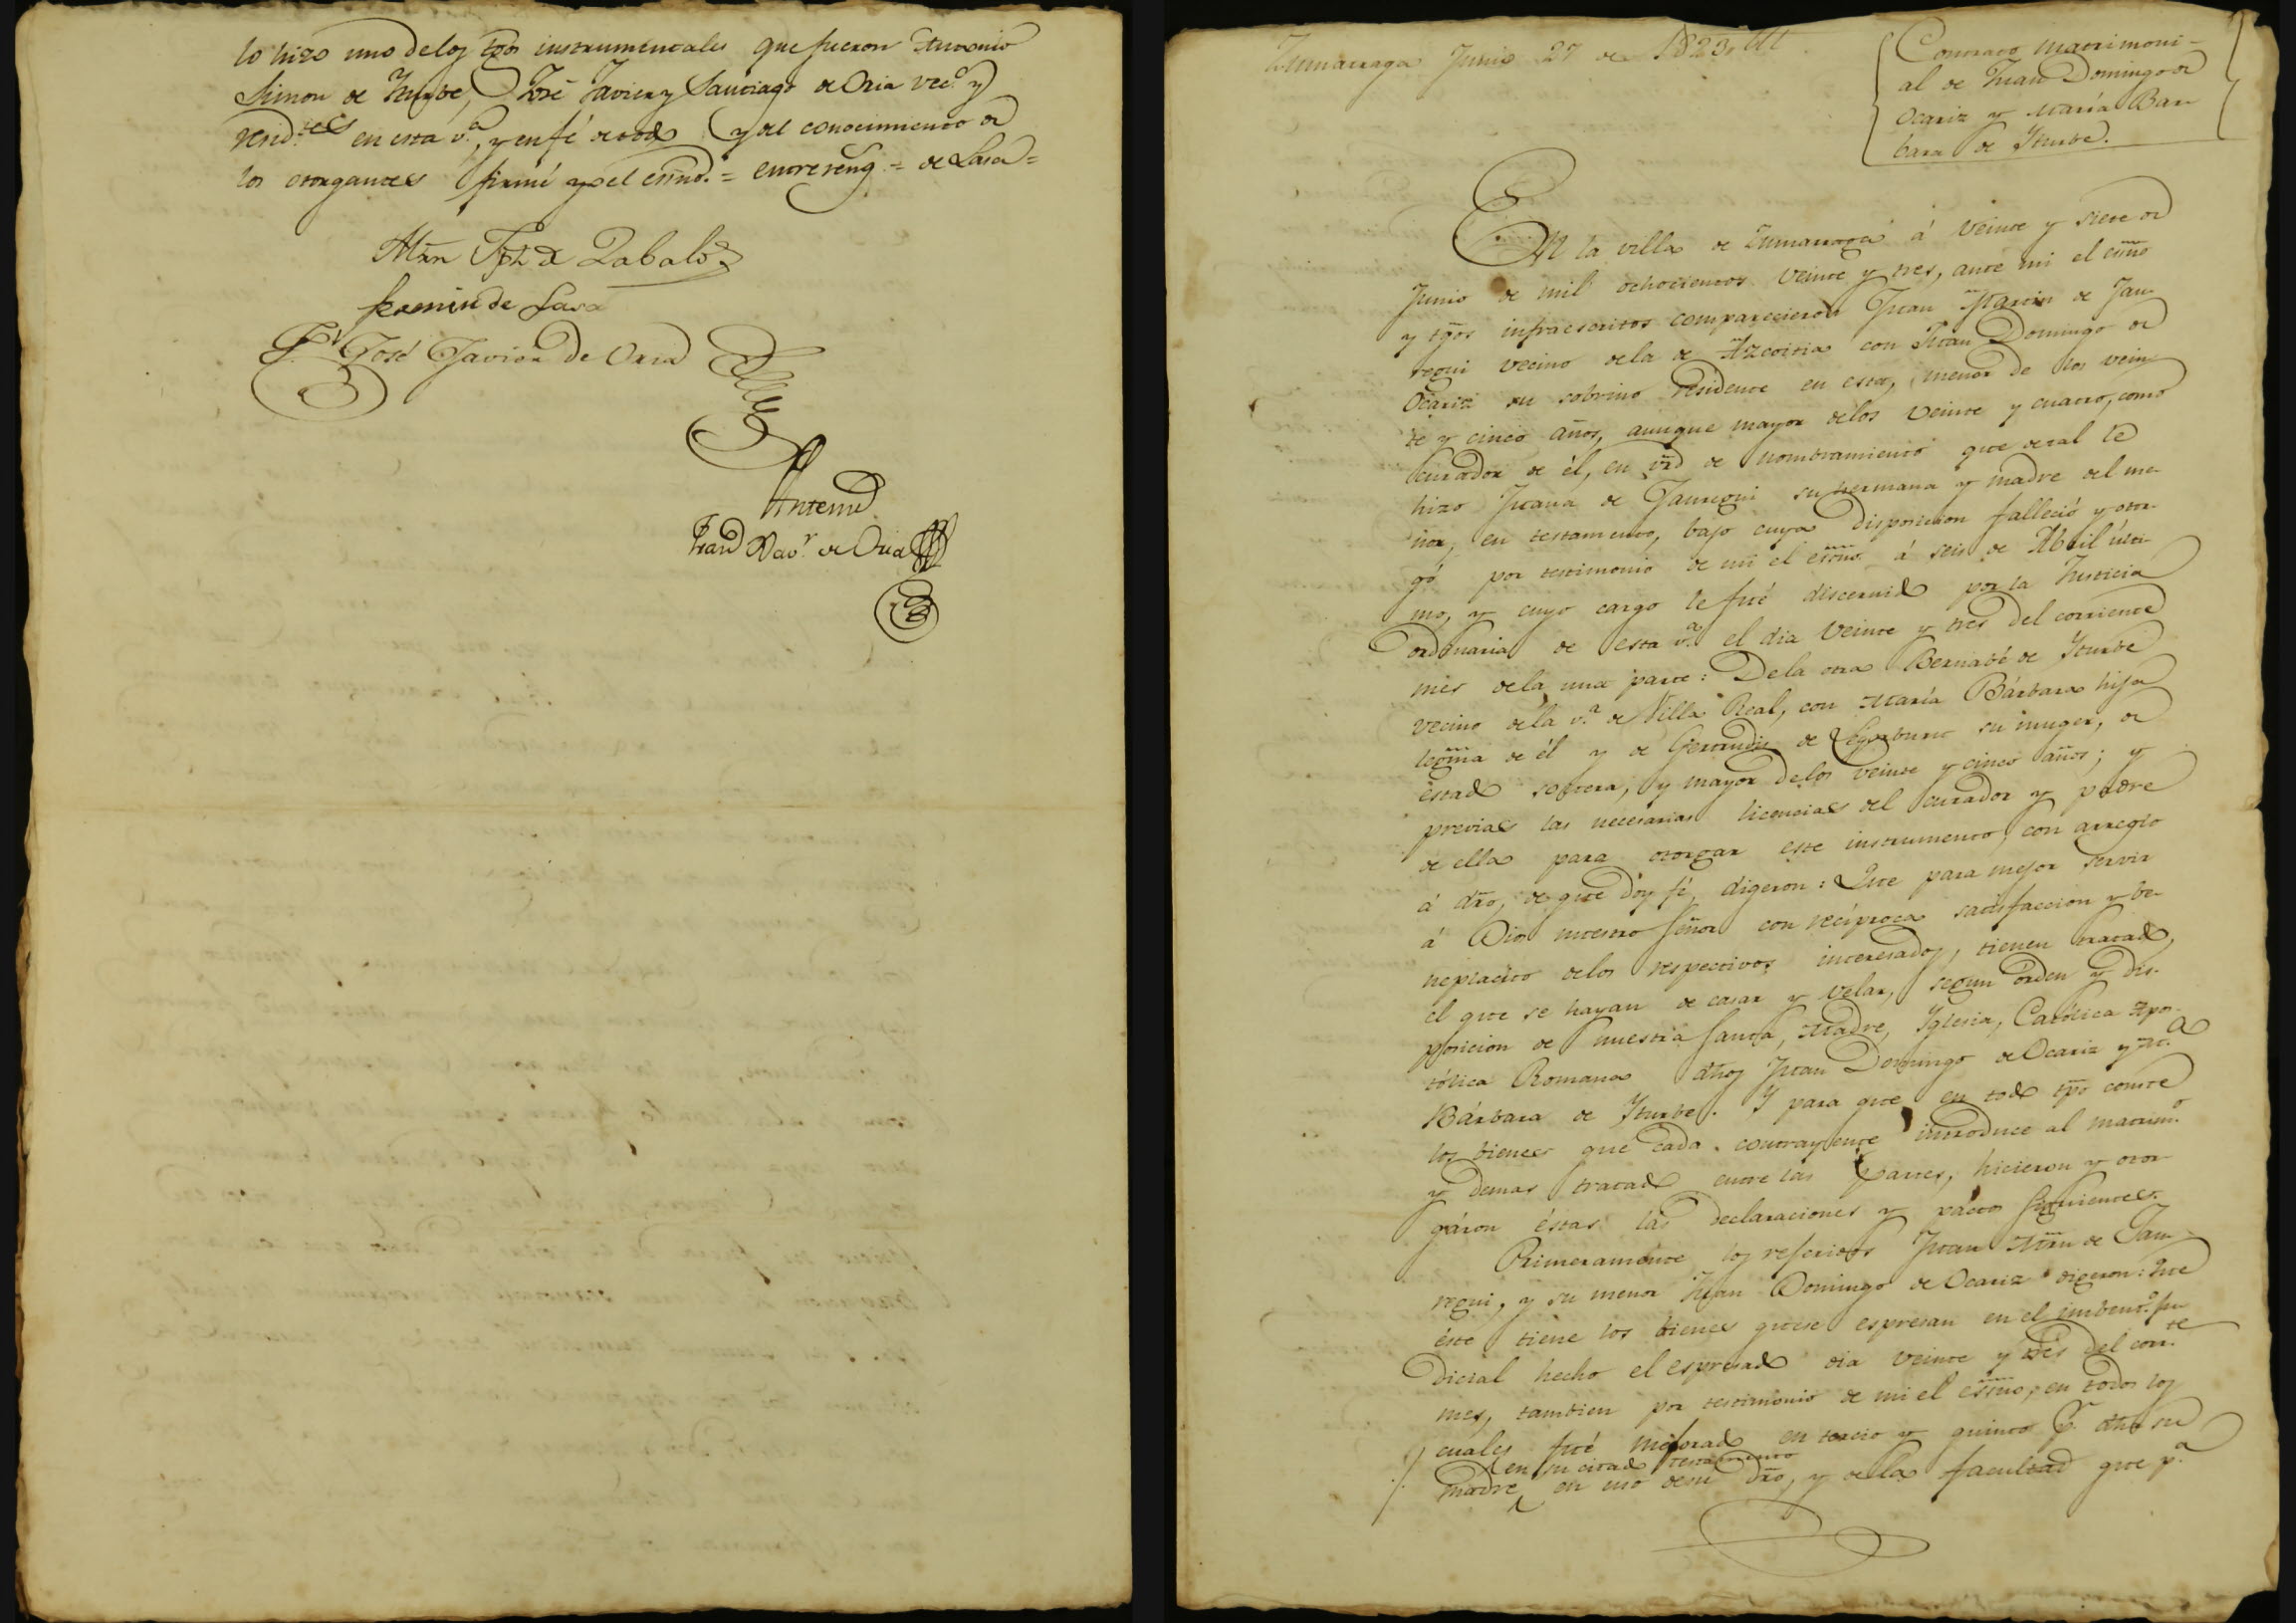 lo hizo uno de los tgos instrumentales que fueron Antonio
Simon de Yturbe, José Javier y Santiago de Oria vecs. y
resid.tes en esta v.a, y en fé de todo y del conocimiento de
los otorgantes firmé yo el essno. = entrereng. = de Lasa =
Mrn Zabalo
Fermin de Lasa
José Javier de Oria
Antemi
Fran.co Xav.r de Oria
Zumarraga Junio 27 de 1823
Contrato matrimoni-
al de Juan Domingo de
Ocariz y María Bar-
bara de Yturbe.
En la villa de Zumarraga á veinte y siete de
Junio de mil ochocientos veinte y tres, ante mi el essno
y tgos infraescritos comparecieron Juan Martin de Jau-
regui vecino dela de Azcoitia con Juan Domingo de
Ocariz su sobrino residente en esta, menor de los vein-
te y cinco años, aunque mayor delos veinte y cuatro, como
curador de él, en vrd de nombramiento que de tal le
hizo Juana de Jauregui su hermana y madre del me-
nor, en testamento, bajo cuya disposicion falleció y otor-
gó por testimonio de mi el essno á seis de Abril últi-
mo, y cuyo cargo le fué discernido por la Justicia
ordinaria de esta v.a el dia veinte y tres del corriente
mes dela una parte: Dela otra Bernabé de Yturbe
vecino dela v.a de Villa Real, con María Bárbara hija
legma de él y de Gertrudis de Legorburu su muger, de
estado soltera, y mayor delos veinte y cinco años; y
previas las necesarias licencias del curador y padre
de ella para otorgar este instrumento, con arreglo
á dro, de que doy fé, digeron: Que para mejor servir
á Dios nuestro Señor con recíproca satisfaccion y be-
neplacito delos respectivos interesados, tienen tratado,
el que se hayan de casar y velar, segun órden y dis-
posicion de nuestra Santa, Madre, Yglesia, Católica Apos-
tólica Romana dhos Juan Domingo de Ocariz y M.a
Bárbara de Yturbe. Y para que en todo tpo conste
los bienes que cada contrayente introduce al matrim.o
y demas tratado entre las partes, hicieron y otor-
garon éstas las declaraciones y pactos siguientes.
Primeramente los referidos Juan Mrn de Jau-
regui, y su menor Juan Domingo de Ocariz digeron: Que
éste tiene los bienes quese espresan en el imbent.o ju-
dicial hecho el espresado dia veinte y tres del corr.te
mes, tambien por testimonio de mi el essno, en todos los
cuales fué mejorado en tercio y quinto p.r dha su
en su citado testamento
madre en uso desu dro, y dela facultad que p.a